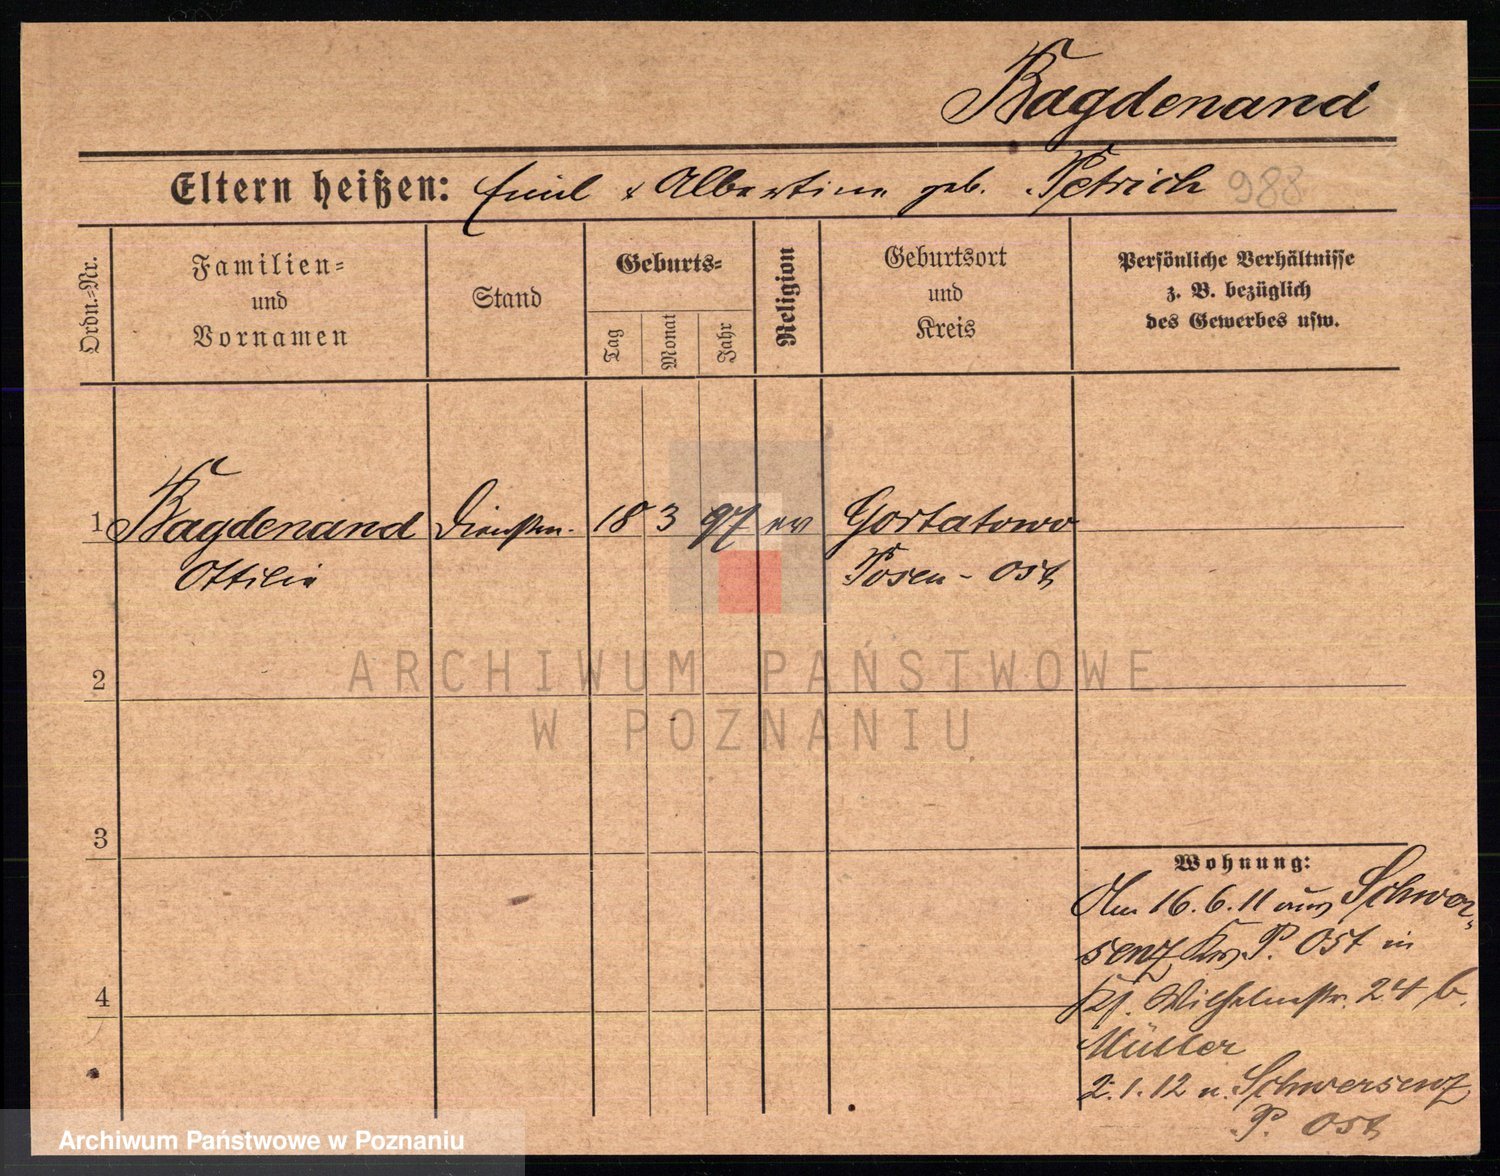 Bagdenand
Eltern heißen: Emil & Albertine geb. Petrich 988
Ordn.-Nr.
Familien-
und
Vornamen
Stand
Geburts-
Tag
Monat
Jahr
Religion
Geburtsort
und
Kreis
Persönliche Verhältnisse
z. B. bezüglich
des Gewerbes usw.
1 Bagdenand Dienstm. 18 3 97 ev Gortatowo
Ottilie Posen - Ost
2
ARCHIWUM PAŃSTWOWE
W POZNANIU
3
Wohnung:
Am 16.6.11 aus Schwer-
senz Krs P. Ost in
Wilhelmstr. 24 b.
Müller
4
2.1.12 n. Schwersenz
P. Ost
Archiwum Państwowe w Poznaniu